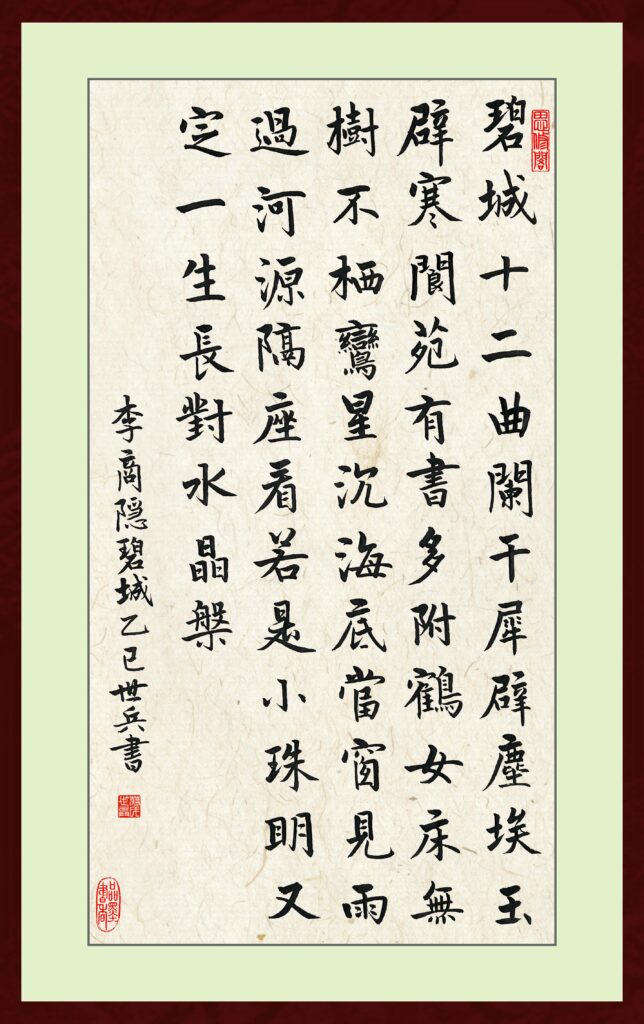 思修閣
碧城十二曲闌干犀辟塵埃玉
辟寒閬苑有書多附鶴女床無
樹不栖鸞星沉海底當窗見雨
過河源隔座看若是小珠明又
定一生長對水晶槃
李商隐碧城乙巳世兵書
品墨書香